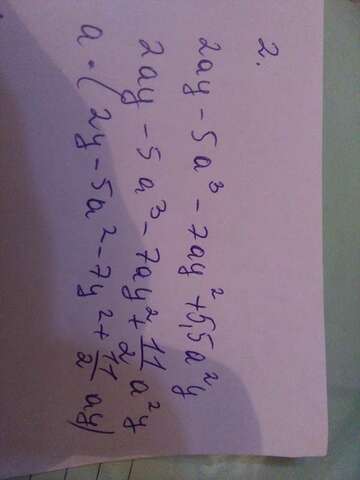 2.
2ay - 5a³ - 7ay² + 5,5a²y
2ay - 5a³ - 7ay² + 11/2 a²y
a · (2y - 5a² - 7y² + 11/2 ay)